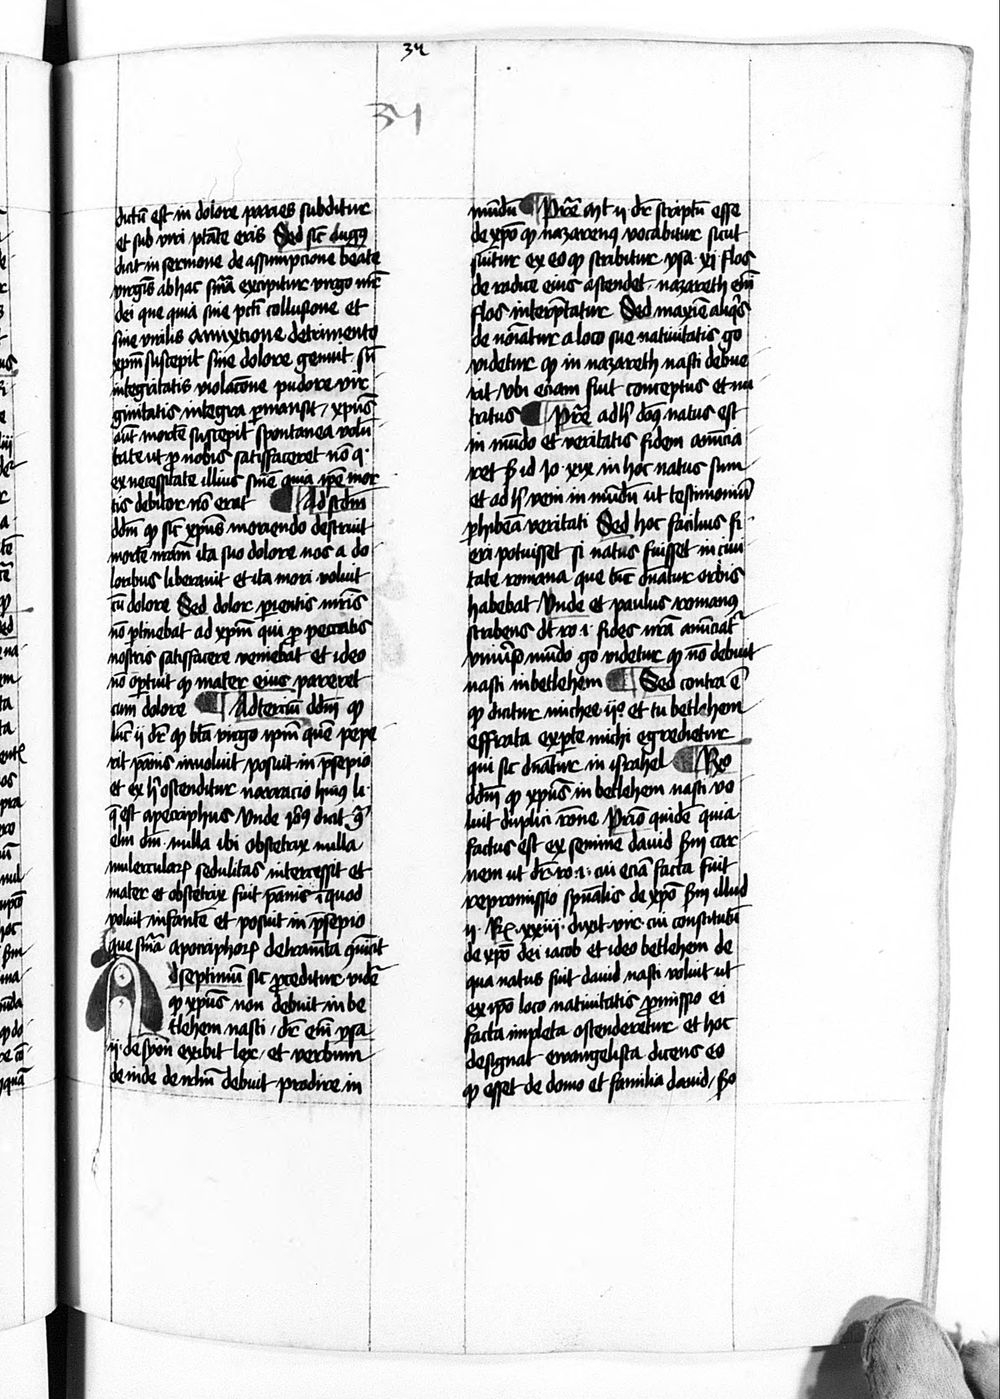 34
34
dictū est in dolore paries subditur
et sub viri ptāte eris Sed sic̄ Augꝯ
dicit in sermone de assumpcione beate
virgīs ab hac sn̄ia excipitur virgo mr̄
dei que quia sine pctī collusione et
sine virilis amixtione detrimento
xpm̄ suscepit sine dolore genuit sn̄
integritatis violacōne pudore vir
ginitatis integra pmansit / xpūs
aūt mortē suscepit spontanea volū
tate ut p nobis satisfaceret nō q
ex necessitate illius sn̄ie quia ip̄e mor
tis debitor nō erat Ad scdm̄
dd̄m ꝙ sic̄ xpūs moriendo destruxit
mortē nr̄am ita suo dolore nos a do
loribus liberauit et ita mori voluit
cū dolore Sed dolor pientis mr̄is
nō ptinebat ad xpm̄ qui p peccatis
nostris satisfacere veniebat et ideo
nō oportuit ꝙ mater eius pareret
cum dolore Ad terciū dd̄m ꝙ
luc̄ ij dr̄ ꝙ bt̄a virgo ipm̄ quē pepe
rit pānis inuoluit posuit in psepio
et ex hͦ ostenditur narracio huiꝯ li
q̄ est apocriphus Vnde Jeroꝯ dicit ꝯͣ
elui dm̄ nulla ibi obstetrix nulla
muliercularꝝ sedulitas intercessit et
mater et obstetrix fuit pānis īquod
voluit infantē et posuit in psepio
que sn̄ia apocriphorꝝ deliramēta ꝯuīcit
Ad septimū sic pceditur videt̄
ꝙ xpūs non debuit in be
tlehem nasti / dr̄ em̄ ysa
ij de syon exibit lex / et verbum
de inde de ierlm̄ debuit prodire in
mūdū Pret̄ Mt ij dr̄ scriptū esse
de xpō ꝙ nazarenꝯ vocabitur sicut
sūitur ex eo ꝙ scribitur ysa xi flos
de radice eius ascendet nazareth em̄
flos interptatur Sed maxīe aliqͥs
de noīatur a loco sue natiuitatis gͦ
videtur ꝙ in nazareth nasti debue
rit vbi eciam fuit conceptus et nu
tritus Pret̄ ad hͦ dn̄s natus est
in mūdo et veritatis fidem anūcia
ret scd̄m id Jo xix in hoc natus sum
et ad hͦ veni in mūdū ut testimoniū
phibeā veritati Sed hoc facilius fi
eri potuisset si natus fuisset in ciui
tate romana que tūc dn̄atur orbis
habebat Vnde et paulus romanꝯ
scribens dt̄ ro i fides vr̄a anūciat̄
vniūso mūdo gͦ videtur ꝙ nō debuit
nasti in betlehem Sed contra ē
ꝙ dicitur michee ijͦ et tu betlehem
effrata ex pte michi egredietur
qui sit dn̄atur in israhel Rͦ
dd̄m ꝙ xpūs in betlehem nasti vo
luit duplici rōne Prīo quidē quia
factus est ex semine dauid scd̄m car
nem ut dr̄ ro i cui eciā facta fuit
repromissio spūalis de xpō scd̄m illud
ij Rꝝ xxiij dixit vir cui constitutū
de xpō dei iacob et ideo betlehem de
qua natus fuit dauid nasti voluit ut
ex ipo loco natiuitatis pmissio ei
facta impleta ostenderetur et hoc
designat euangelista dicens eo
ꝙ esset de domo et familia dauid / scd̄o